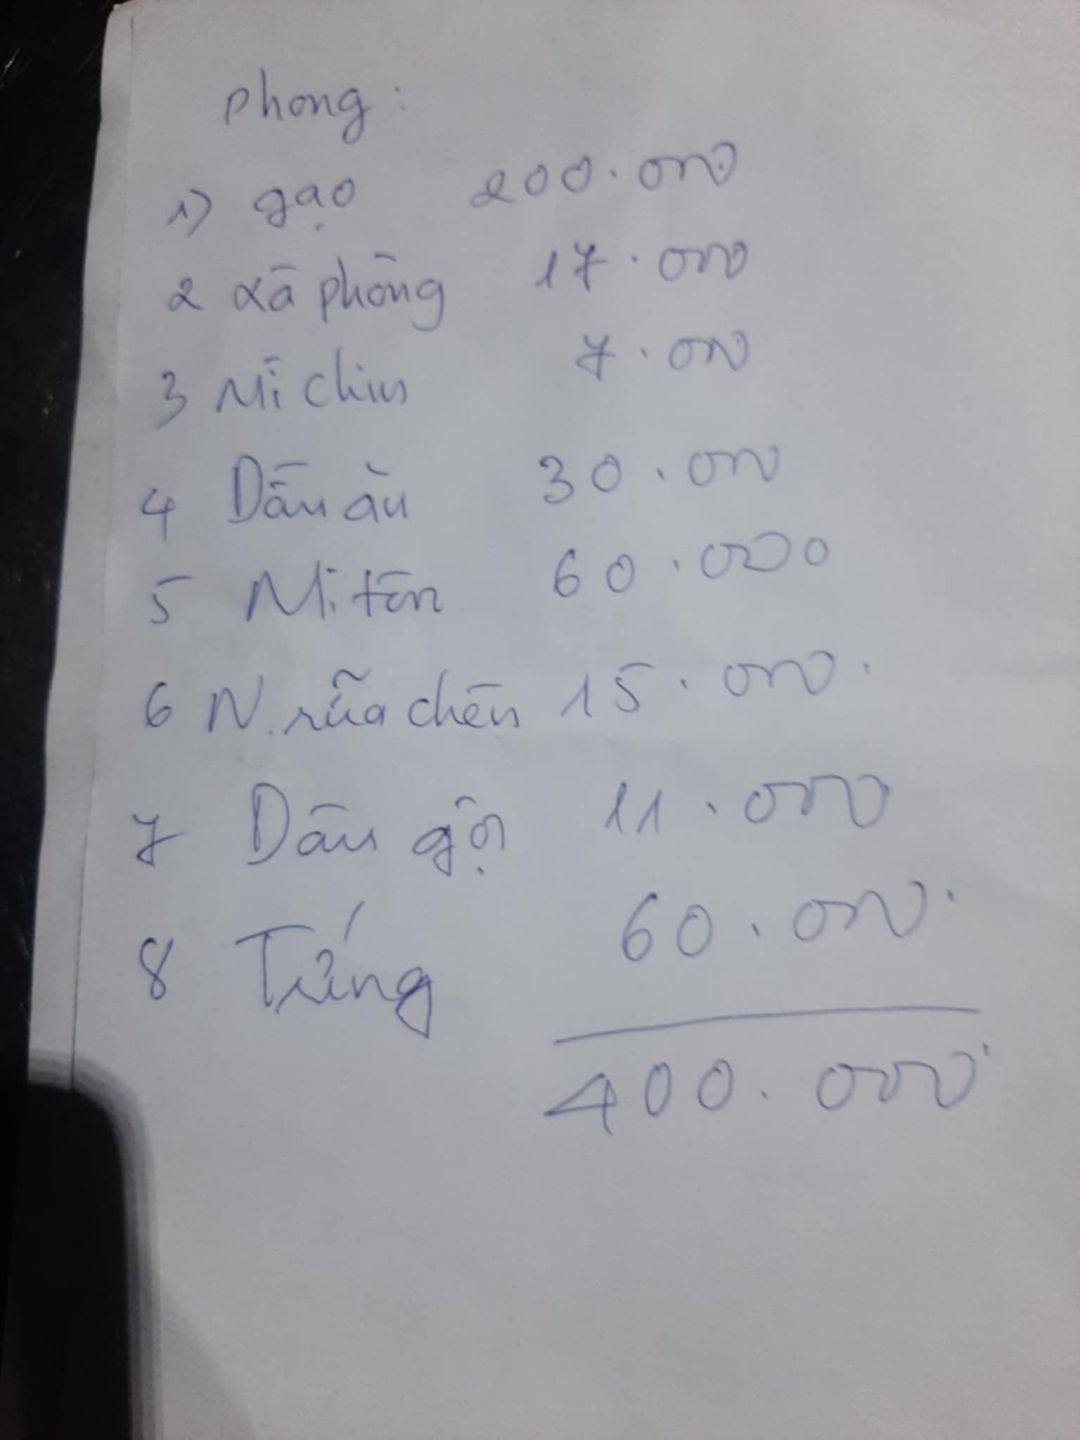 Phong:
1) gạo 200.000
2 xà phòng 17.000
3 Mì chin 7.000
4 Dầu ăn 30.000
5 Mì tôn 60.000
6 N. rữa chén 15.000.
7 Dầu gội 11.000
8 Trứng 60.000.
400.000